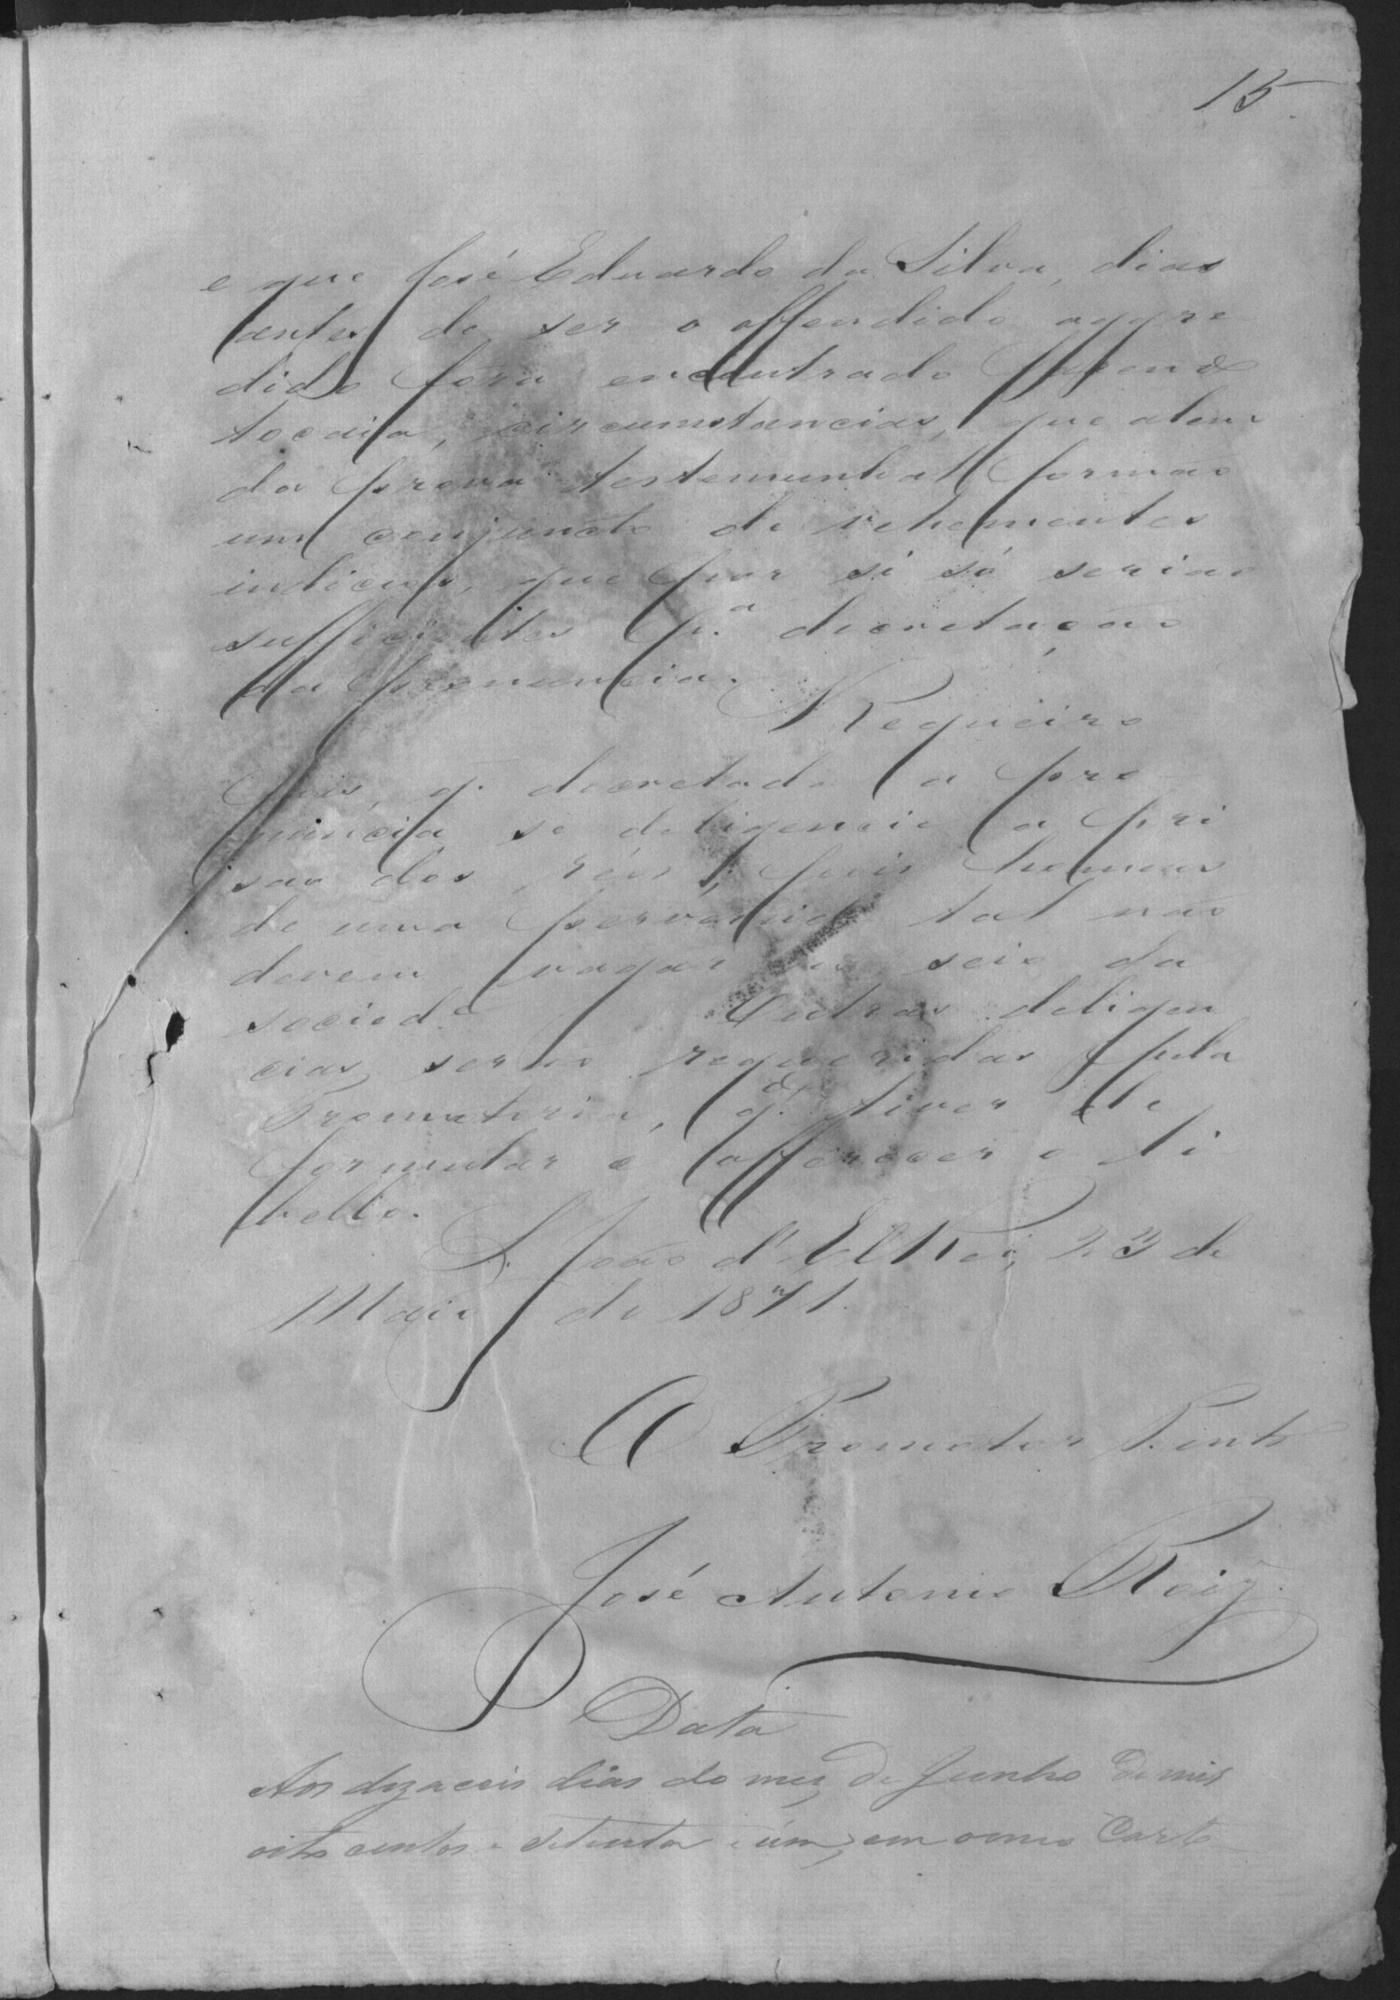 15
e que José Eduardo da Silva, dias
antes de ser o offendido aggre
dido fora encontrado fazendo
tocaia, circumstancias, que alem
da prova testemunhal formão
um conjuncto de vehementes
indicios, que por si só serião
sufficientes p.ª decretação
da pronuncia.
Requeiro
pois, q. decretada a pro
nuncia se deligencie a pri
são dos réos, pois homens
de uma perversid.e tal não
devem vagar no seio da
socied.e Outras deligen
cias serão requeridas pela
Promotoria, q.do tiver de
formular e offerecer o li
bello.
S. João d'ElRei, 23 de
Maio de 1871.
O Promotor Publ
José Antonio Roiz
Data
Aos dezaceis dias do mez de Junho de mil
oito centos e setenta e um, em o meo Carto